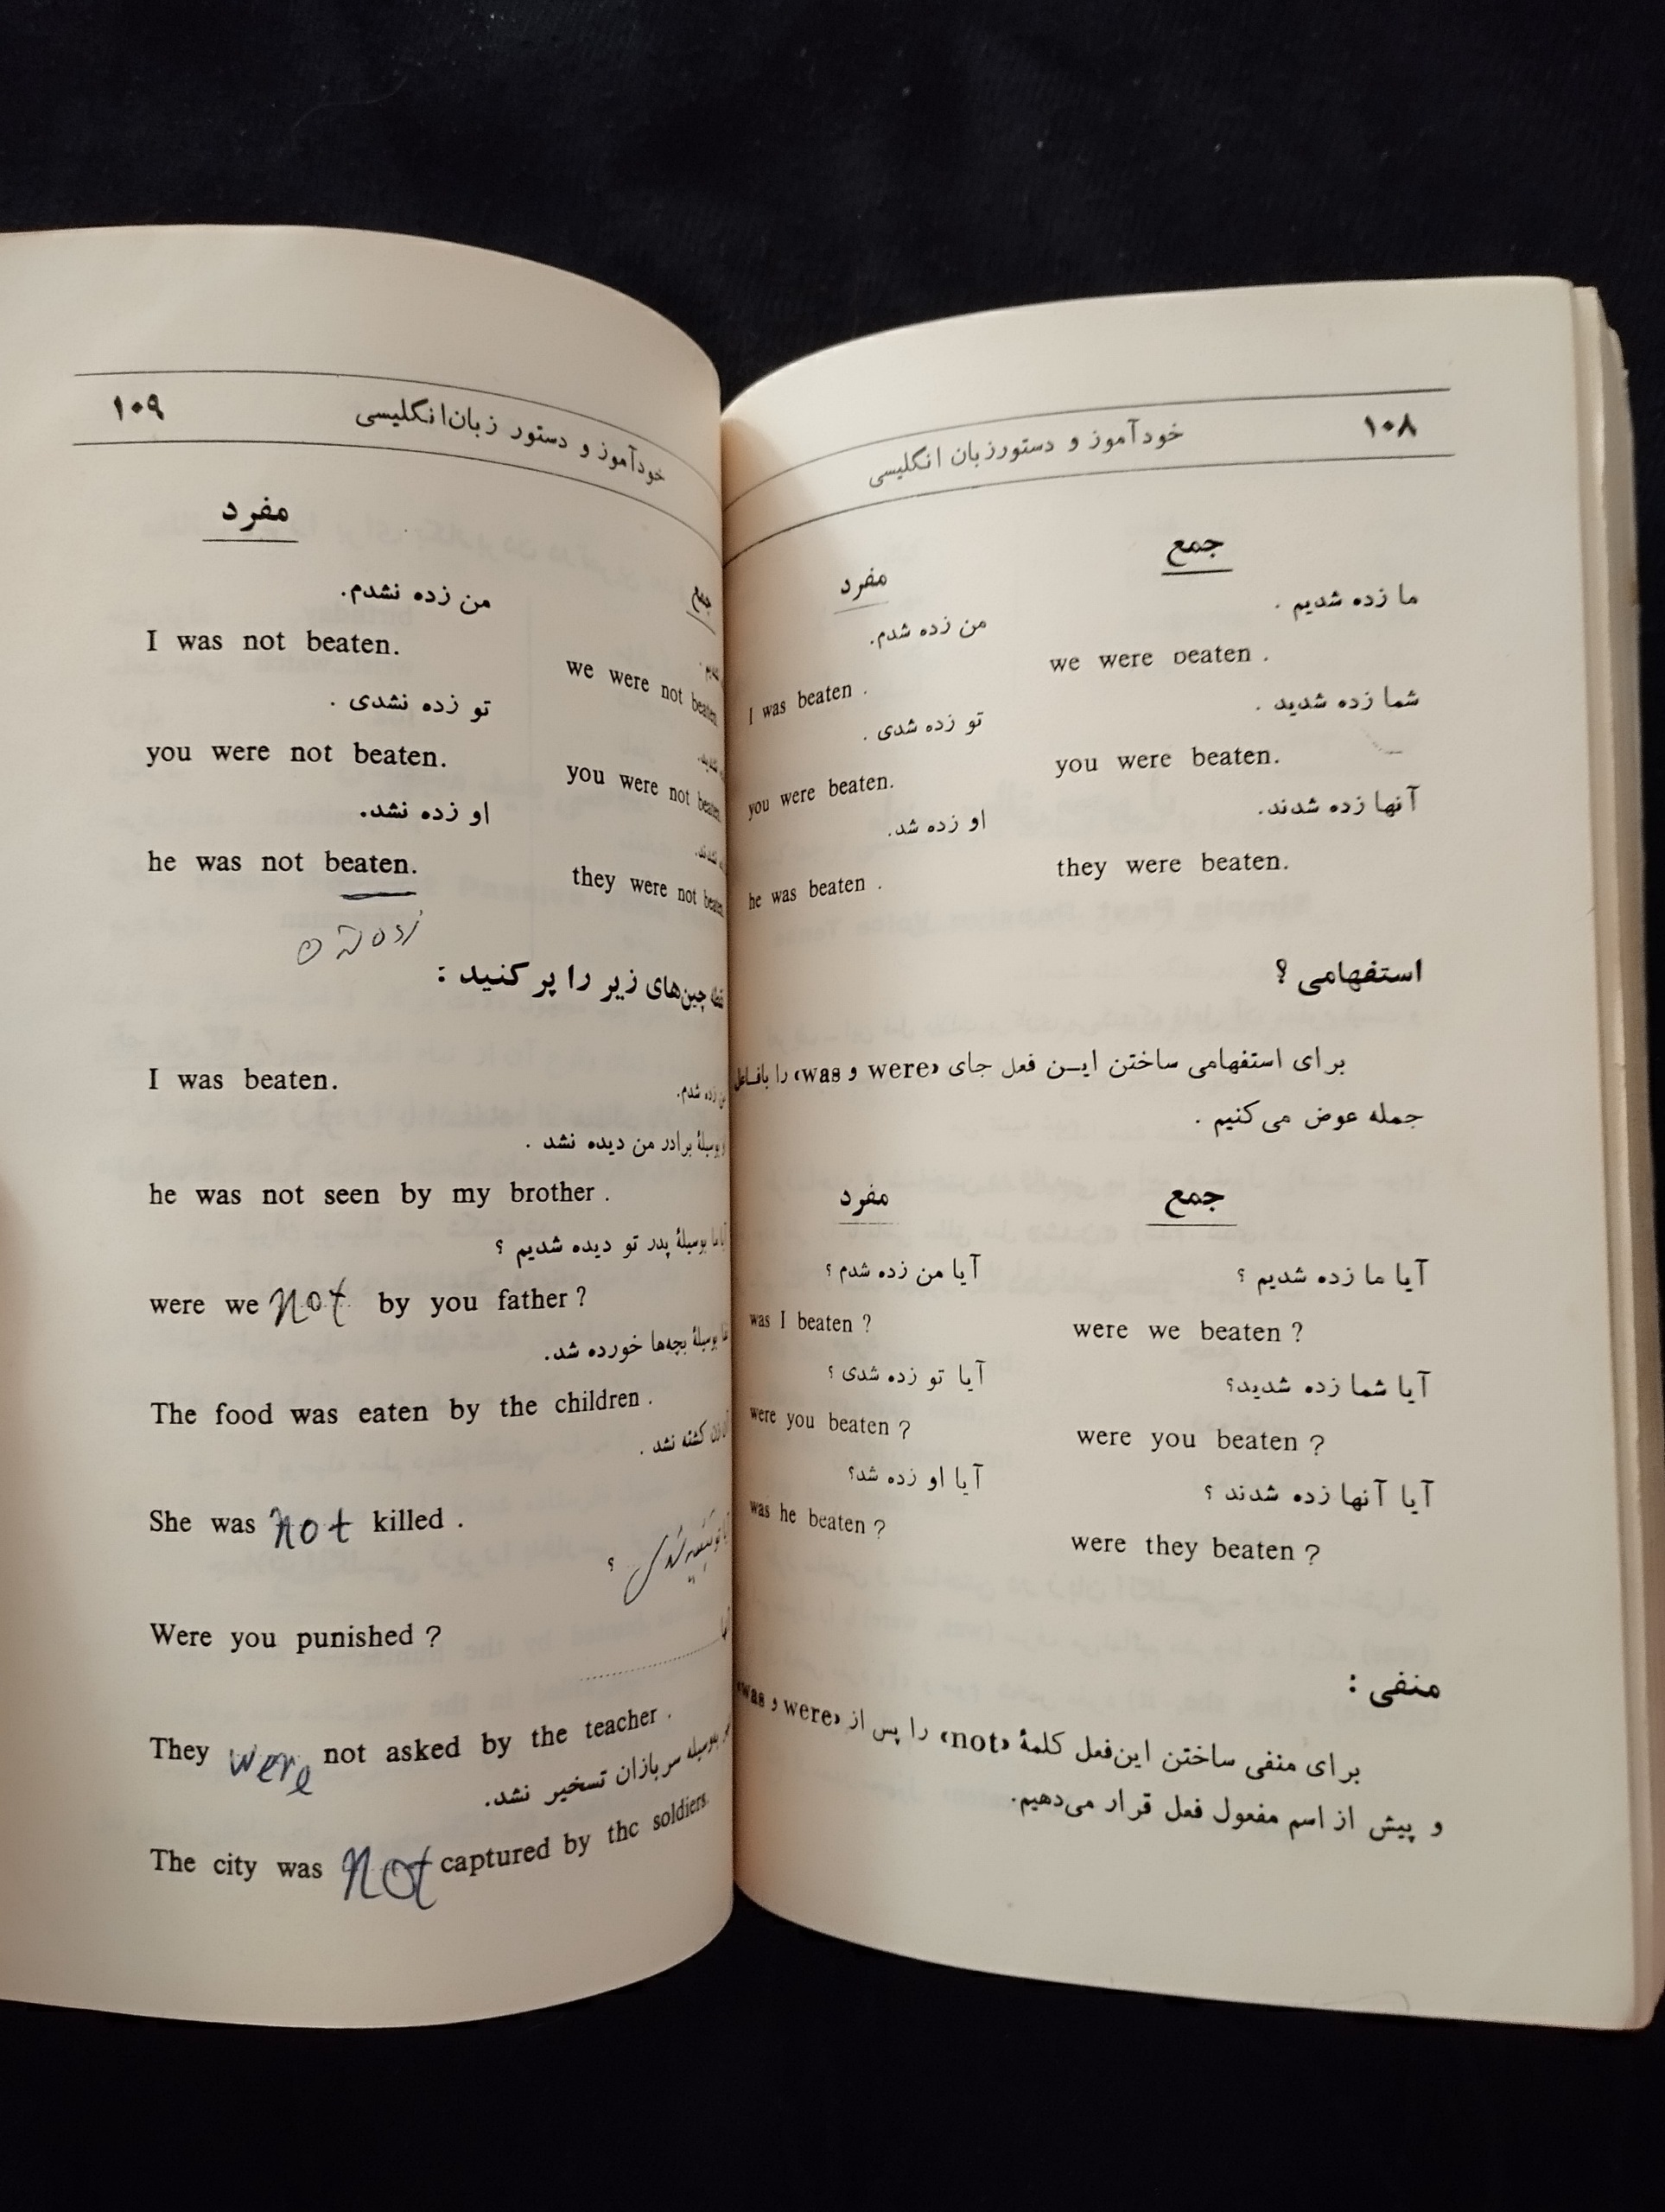 ۱۰۸
خودآموز و دستورزبان انگلیسی
جمع
مفرد
ما زده شدیم .
من زده شدم.
we were beaten .
I was beaten .
شما زده شدید .
تو زده شدی .
you were beaten.
you were beaten.
آنها زده شدند.
او زده شد.
they were beaten.
he was beaten .
استفهامی ؟
برای استفهامی ساختن ایـن فعل جای «was و were» را بافـاعل
جمله عوض می‌کنیم .
جمع
مفرد
آیا ما زده شدیم ؟
آیا من زده شدم ؟
were we beaten ?
was I beaten ?
آیا شما زده شدید؟
آیا تو زده شدی ؟
were you beaten ?
were you beaten ?
آیا آنها زده شدند ؟
آیا او زده شد؟
were they beaten ?
was he beaten ?
منفی :
برای منفی ساختن این‌فعل کلمهٔ «not» را پس از «were و was»
و پیش از اسم مفعول فعل قرار می‌دهیم.
۱۰۹
خودآموز و دستور زبان‌انگلیسی
جمع
مفرد
من زده نشدم.
we were not beaten.
I was not beaten.
تو زده نشدی .
you were not beaten.
you were not beaten.
او زده نشد.
they were not beaten
he was not beaten.
چین‌های زیر را پر کنید :
زده شدم.
I was beaten.
بوسیلهٔ برادر من دیده نشد .
he was not seen by my brother .
آیا ما بوسیلهٔ پدر تو دیده شدیم ؟
were we not by you father ?
بوسیلهٔ بچه‌ها خورده شد.
The food was eaten by the children .
زن کشته نشد .
She was not killed .
آیا تو تنبیه شدی ؟
Were you punished ?
They were not asked by the teacher .
بوسیله سربازان تسخیر نشد.
The city was not captured by the soldiers.